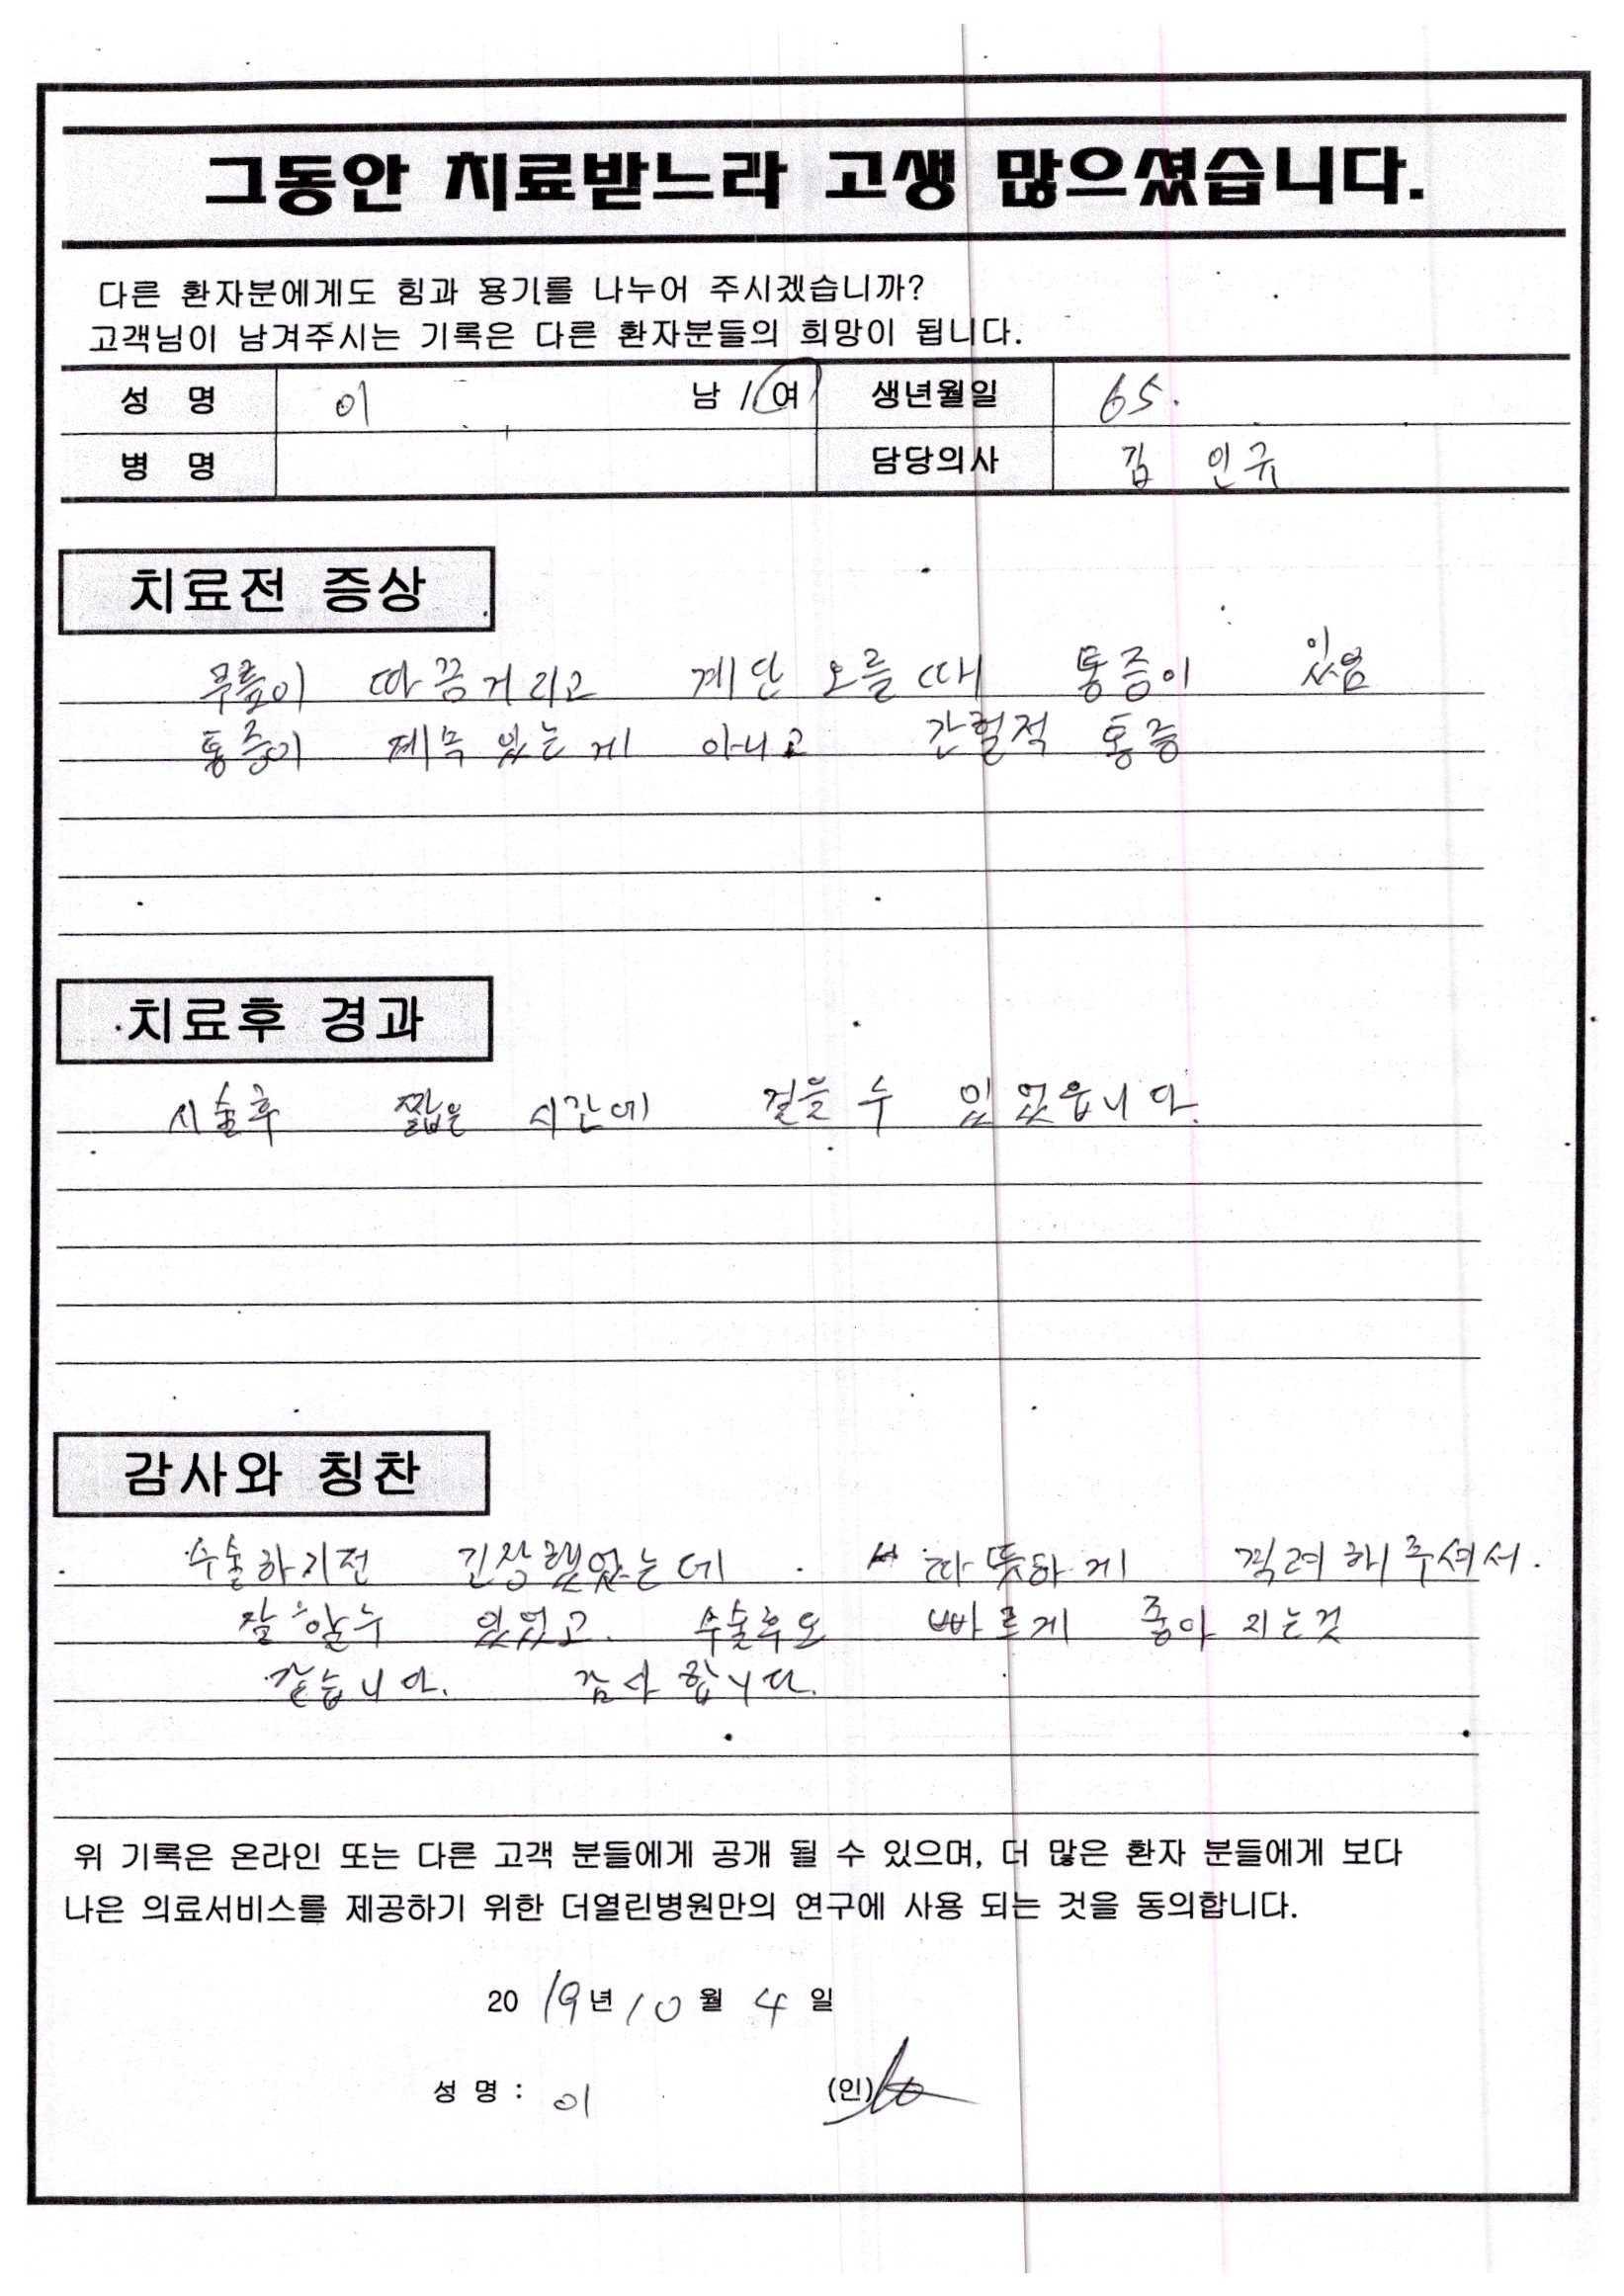 그동안 치료받느라 고생 많으셨습니다.
다른 환자분에게도 힘과 용기를 나누어 주시겠습니까?
고객님이 남겨주시는 기록은 다른 환자분들의 희망이 됩니다.
성 명 이 남 / 여 생년월일 65.
병 명 담당의사 김 인규
치료전 증상
무릎이 따끔거리고 계단 오를 때 통증이 있음
통증이 계속 있는게 아니고 간헐적 통증
치료후 경과
시술후 짧은 시간에 걸을 수 있었읍니다.
감사와 칭찬
수술하기전 긴장했었는데 따뜻하게 격려해주셔서.
잘 할수 있었고. 수술후도 빠르게 좋아 지는것
같습니다. 감사합니다.
위 기록은 온라인 또는 다른 고객 분들에게 공개 될 수 있으며, 더 많은 환자 분들에게 보다
나은 의료서비스를 제공하기 위한 더열린병원만의 연구에 사용 되는 것을 동의합니다.
20 19년 10월 4일
성 명 : 이 (인)